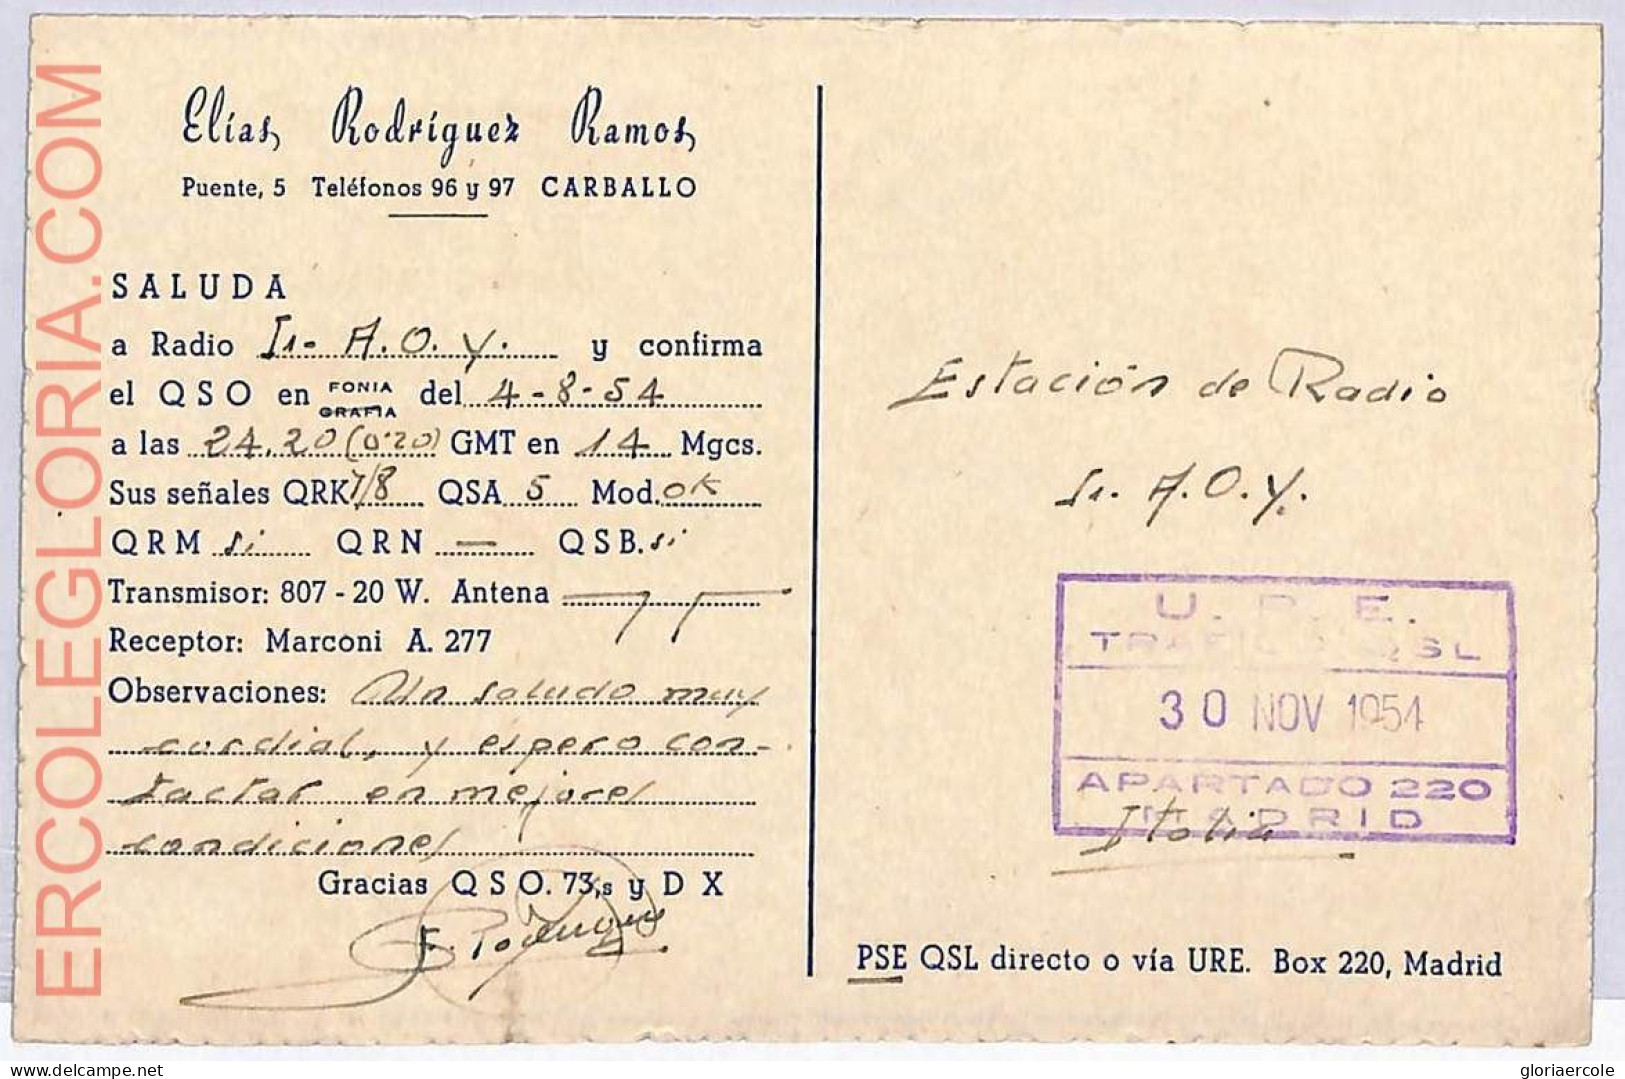 Elías Rodríguez Ramos
Puente, 5 Teléfonos 96 y 97 CARBALLO
SALUDA
a Radio I1- A.O.Y. y confirma
el QSO en FONIA GRAFIA del 4-8-54
a las 24,20 (0'20) GMT en 14 Mgcs.
Sus señales QRK 7/8 QSA 5 Mod. OK
QRM si QRN — QSB. si
Transmisor: 807 - 20 W. Antena
Receptor: Marconi A. 277
Observaciones: Un saludo muy
cordial, y espero con-
tactar en mejores
condiciones
Gracias QSO. 73,s y DX
E. Rodríguez
Estación de Radio
I1. A.O.Y.
U. R. E.
TRAFICO QSL
30 NOV 1954
APARTADO 220
MADRID
Italia
PSE QSL directo o vía URE. Box 220, Madrid
ERCOLEGLORIA.COM
delcampe.net
gloriaercole